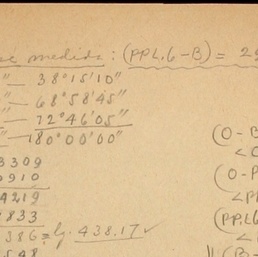 medida: (PPL,6-B) = 2
" — 38°15'10"
" — 68°58'45"
" — 72°46'05"
" — 180°00'00"
3309
0910
4219
2833
386 = lg. 438.17 ✓
(O-B
(O-P
(PPL,6